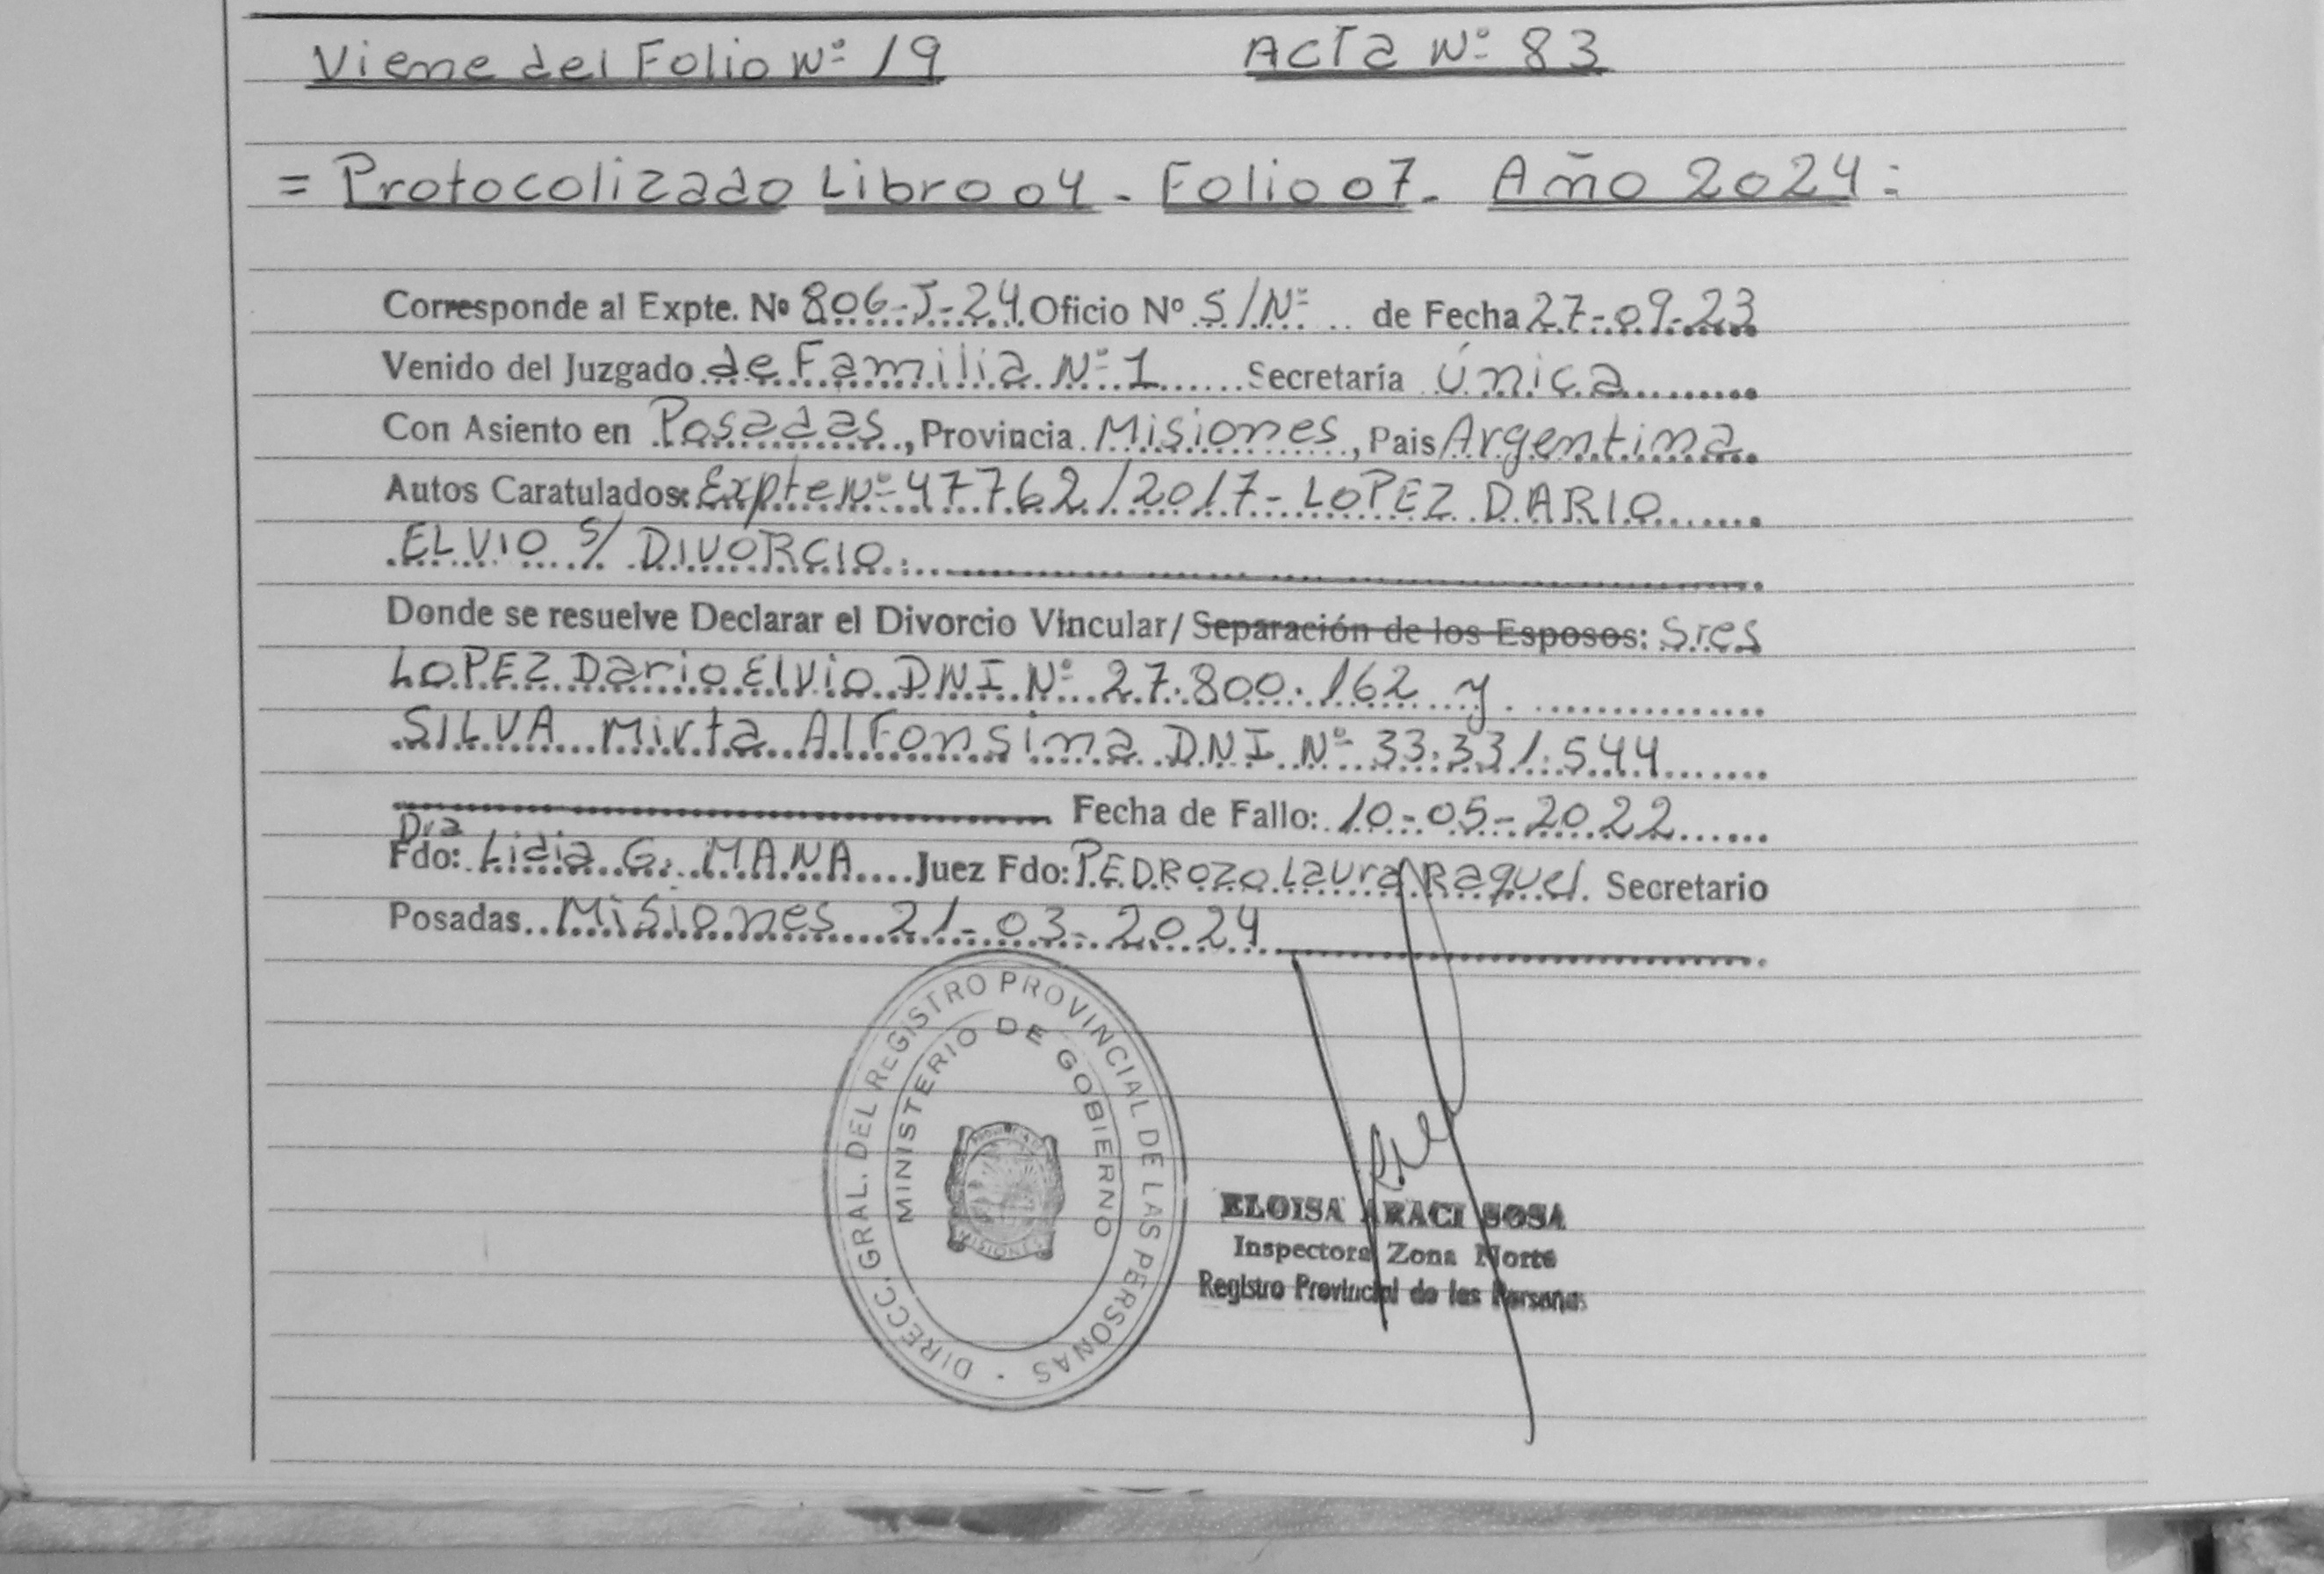 Viene del Folio Nº 19 Acta Nº 83
= Protocolizado Libro 04 - Folio 07 - Año 2024 =
Corresponde al Expte. Nº 806-J-24 Oficio Nº S/Nº de Fecha 27-09-23
Venido del Juzgado de Familia Nº 1 Secretaría única
Con Asiento en Posadas, Provincia Misiones, Pais Argentina
Autos Caratulados: Expte Nº 47762/2017 - LOPEZ DARIO
ELVIO S/ DIVORCIO.
Donde se resuelve Declarar el Divorcio Vincular/ Separación de los Esposos: Sres
LOPEZ Dario Elvio DNI Nº 27.800.162 y
SILVA Mirta Alfonsina DNI Nº 33.331.544
Fecha de Fallo: 10-05-2022
Dra
Fdo: Lidia G. MANA Juez Fdo: PEDROZO Laura Raquel. Secretario
Posadas Misiones 21-03-2024
DIRECC. GRAL. DEL REGISTRO PROVINCIAL DE LAS PERSONAS
MINISTERIO DE GOBIERNO
PROVINCIA DE
MISIONES
ELOISA ARACI SOSA
Inspectora Zona Norte
Registro Provincial de las Personas